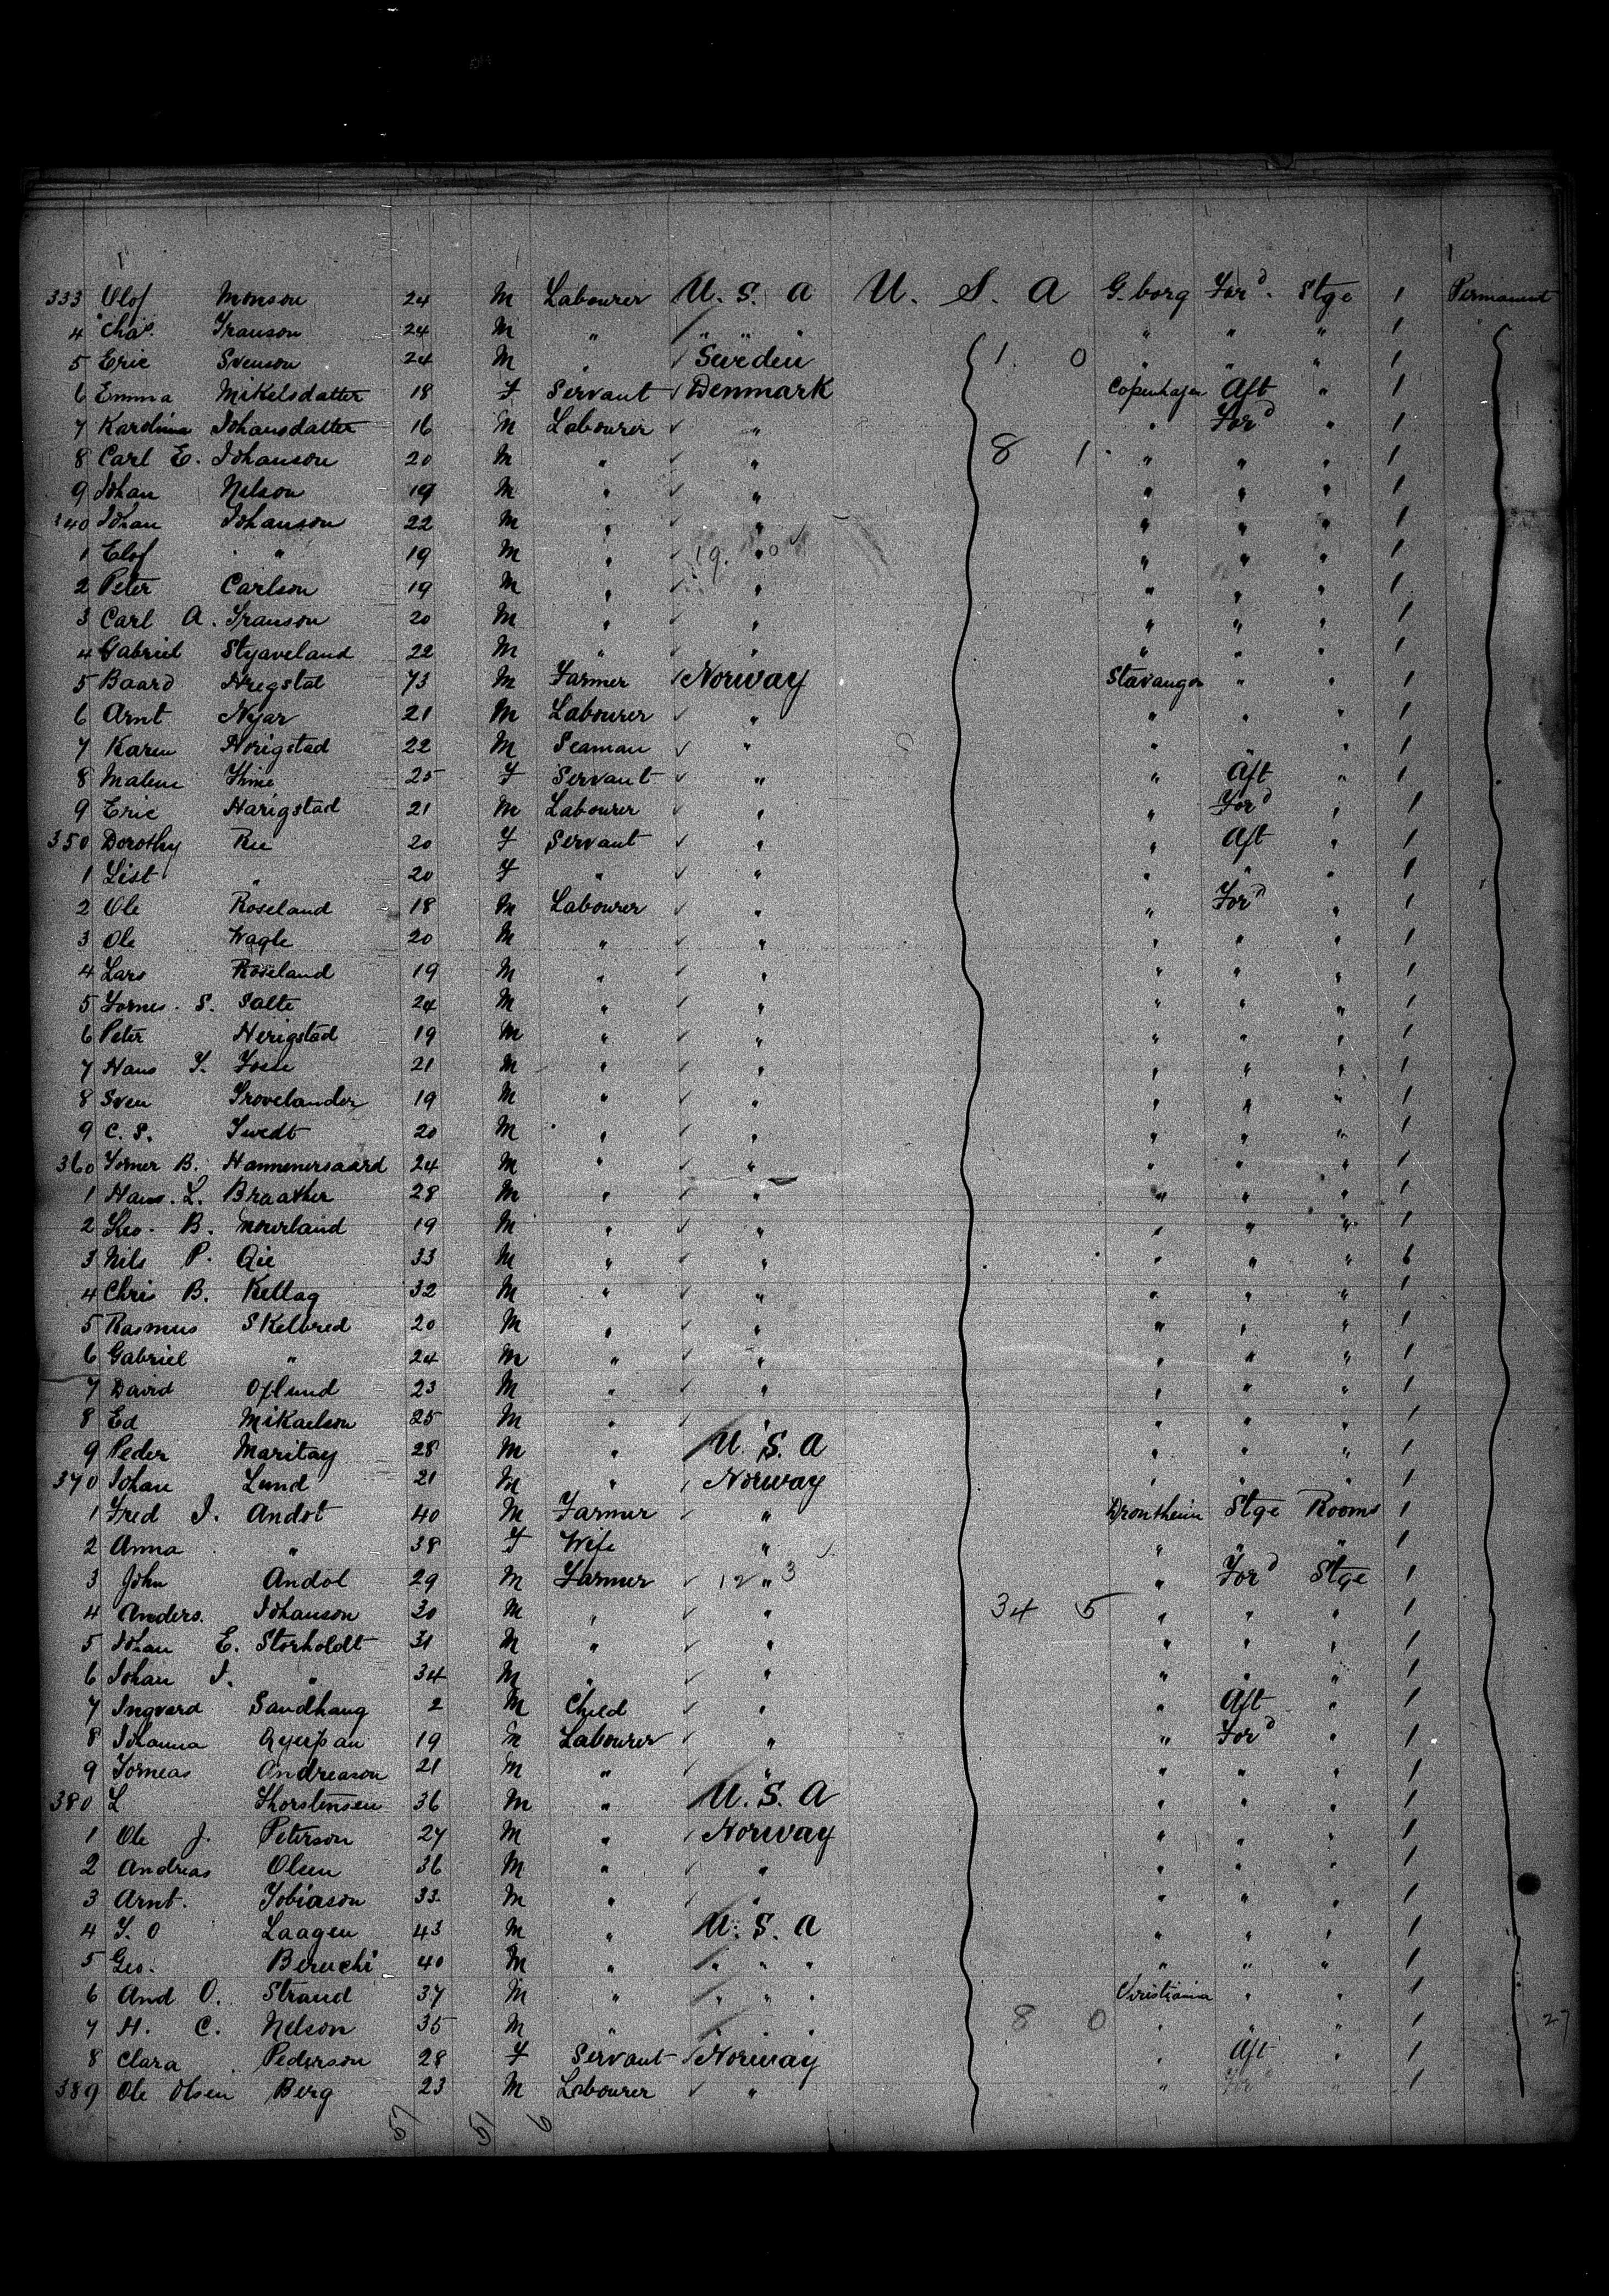 333 Olof Monson 24 M Labourer U. S. A U. S. A G. borg For'd. Stge 1 Permanent
4 Chas Franson 24 M " " " " " " " 1
5 Eric Svenson 24 M " Sweden 1. 0 " " " 1
6 Emma Mikelsdatter 18 F Servant Denmark Copenhagen Aft " 1
7 Karolina Johansdatter 16 M Labourer " " For'd " 1
8 Carl E. Johanson 20 M " " 8 1 " " " 1
9 Johan Nelson 19 M " " " " " 1
140 Johan Johanson 22 M " " " " " 1
1 Elof " 19 M " " 19. 0 " " " 1
2 Peter Carlson 19 M " " " " " 1
3 Carl A. Franson 20 M " " " " " 1
4 Gabriel Styaveland 22 M " " " " " 1
5 Baard Hregstat 73 M Farmer Norway Stavanger " " 1
6 Arnt Nyar 21 M Labourer " " " " 1
7 Karen Horigstad 22 M Seaman " " " " 1
8 Malene Thime 25 F Servant " " Aft " 1
9 Eric Harigstad 21 M Labourer " " For'd " 1
350 Dorothy Ree 20 F Servant " " Aft " 1
1 List " 20 F " " " " " 1
2 Ole Roseland 18 M Labourer " " For'd " 1
3 Ole Wagle 20 M " " " " " 1
4 Lars Roseland 19 M " " " " " 1
5 Tornes. S. Salte 24 M " " " " " 1
6 Peter Herigstad 19 M " " " " " 1
7 Hans T. 21 M " " " " " 1
8 Sven Trovelander 19 M " " " " " 1
9 C. S. Twedt 20 M " " " " " 1
360 Torner B. Hammenersaard 24 M " " " " " 1
1 Hans. L. Braather 28 M " " " " " 1
2 B. Mowrland 19 M " " " " " 1
3 Nils P. 33 M " " " " " 6
4 Chris B. Kellag 32 M " " " " " 1
5 Rasmus Skelbred 20 M " " " " " 1
6 Gabriel " 24 M " " " " " 1
7 David Oflund 23 M " " " " " 1
8 Ed Mikaelson 25 M " " " " " 1
9 Peder Maritay 28 M " U. S. A " " " 1
370 Johan Lund 21 M " Norway " " " 1
1 Fred J. Andot 40 M Farmer " Drontheim Stge Rooms 1
2 Anna " 38 F Wife " " " " 1
3 John Andol 29 M Farmer " 12 3 " For'd Stge 1
4 Anders. Johanson 30 M " " 34 5 " " " 1
5 Johan E. Storholdt 31 M " " " " " 1
6 Johan J. " 34 M " " " " " 1
7 Ingvard Sandhaug 2 M Child " " Aft " 1
8 Johanna 19 M Labourer " " For'd " 1
9 Torneas Andreason 21 M " " " " " 1
380 L Thorstensen 36 M " U. S. A " " " 1
1 Ole J. Peterson 27 M " Norway " " " 1
2 Andreas Olsen 36 M " " " " " 1
3 Arnt. Tobiason 33 M " " " " " 1
4 T. O Laagen 43 M " U. S. A " " " 1
5 Geo. Beruchi 40 M " " " " " " " 1
6 And O. Strand 37 M " " " " Cristiania " " 1
7 H. C. Nelson 35 M " " " " 8 0 " " " 1 27
8 Clara Pederson 28 F Servant Norway " Aft " 1
389 Ole Olsen Berg 23 M Labourer " " For'd " 1
57 51 6